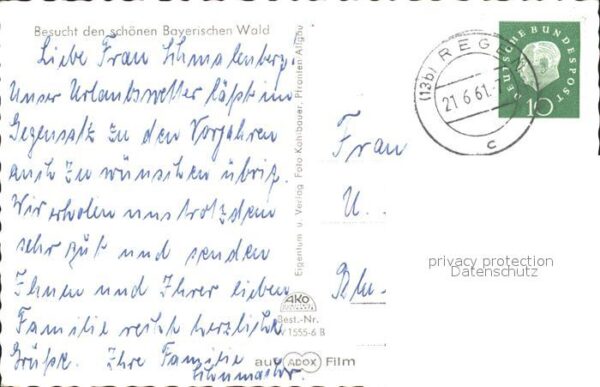 Besucht den schönen Bayerischen Wald
Liebe Frau Schmalenberg,
Unser Urlaubswetter läßt im
Gegensatz zu den Vorjahren
auch zu wünschen übrig.
Wir erholen uns trotzdem
sehr gut und senden
Ihnen und Ihrer lieben
Familie recht herzliche
Grüße. Ihre Familie
Eigentum u. Verlag Foto Kohlbauer, Pfronten Allgäu
AKO
Best.-Nr.
V 1555-6 B
auf ADOX Film
(13b) REGEN
21.6.61
c
DEUTSCHE BUNDESPOST
10
Frau
U.
privacy protection
Datenschutz